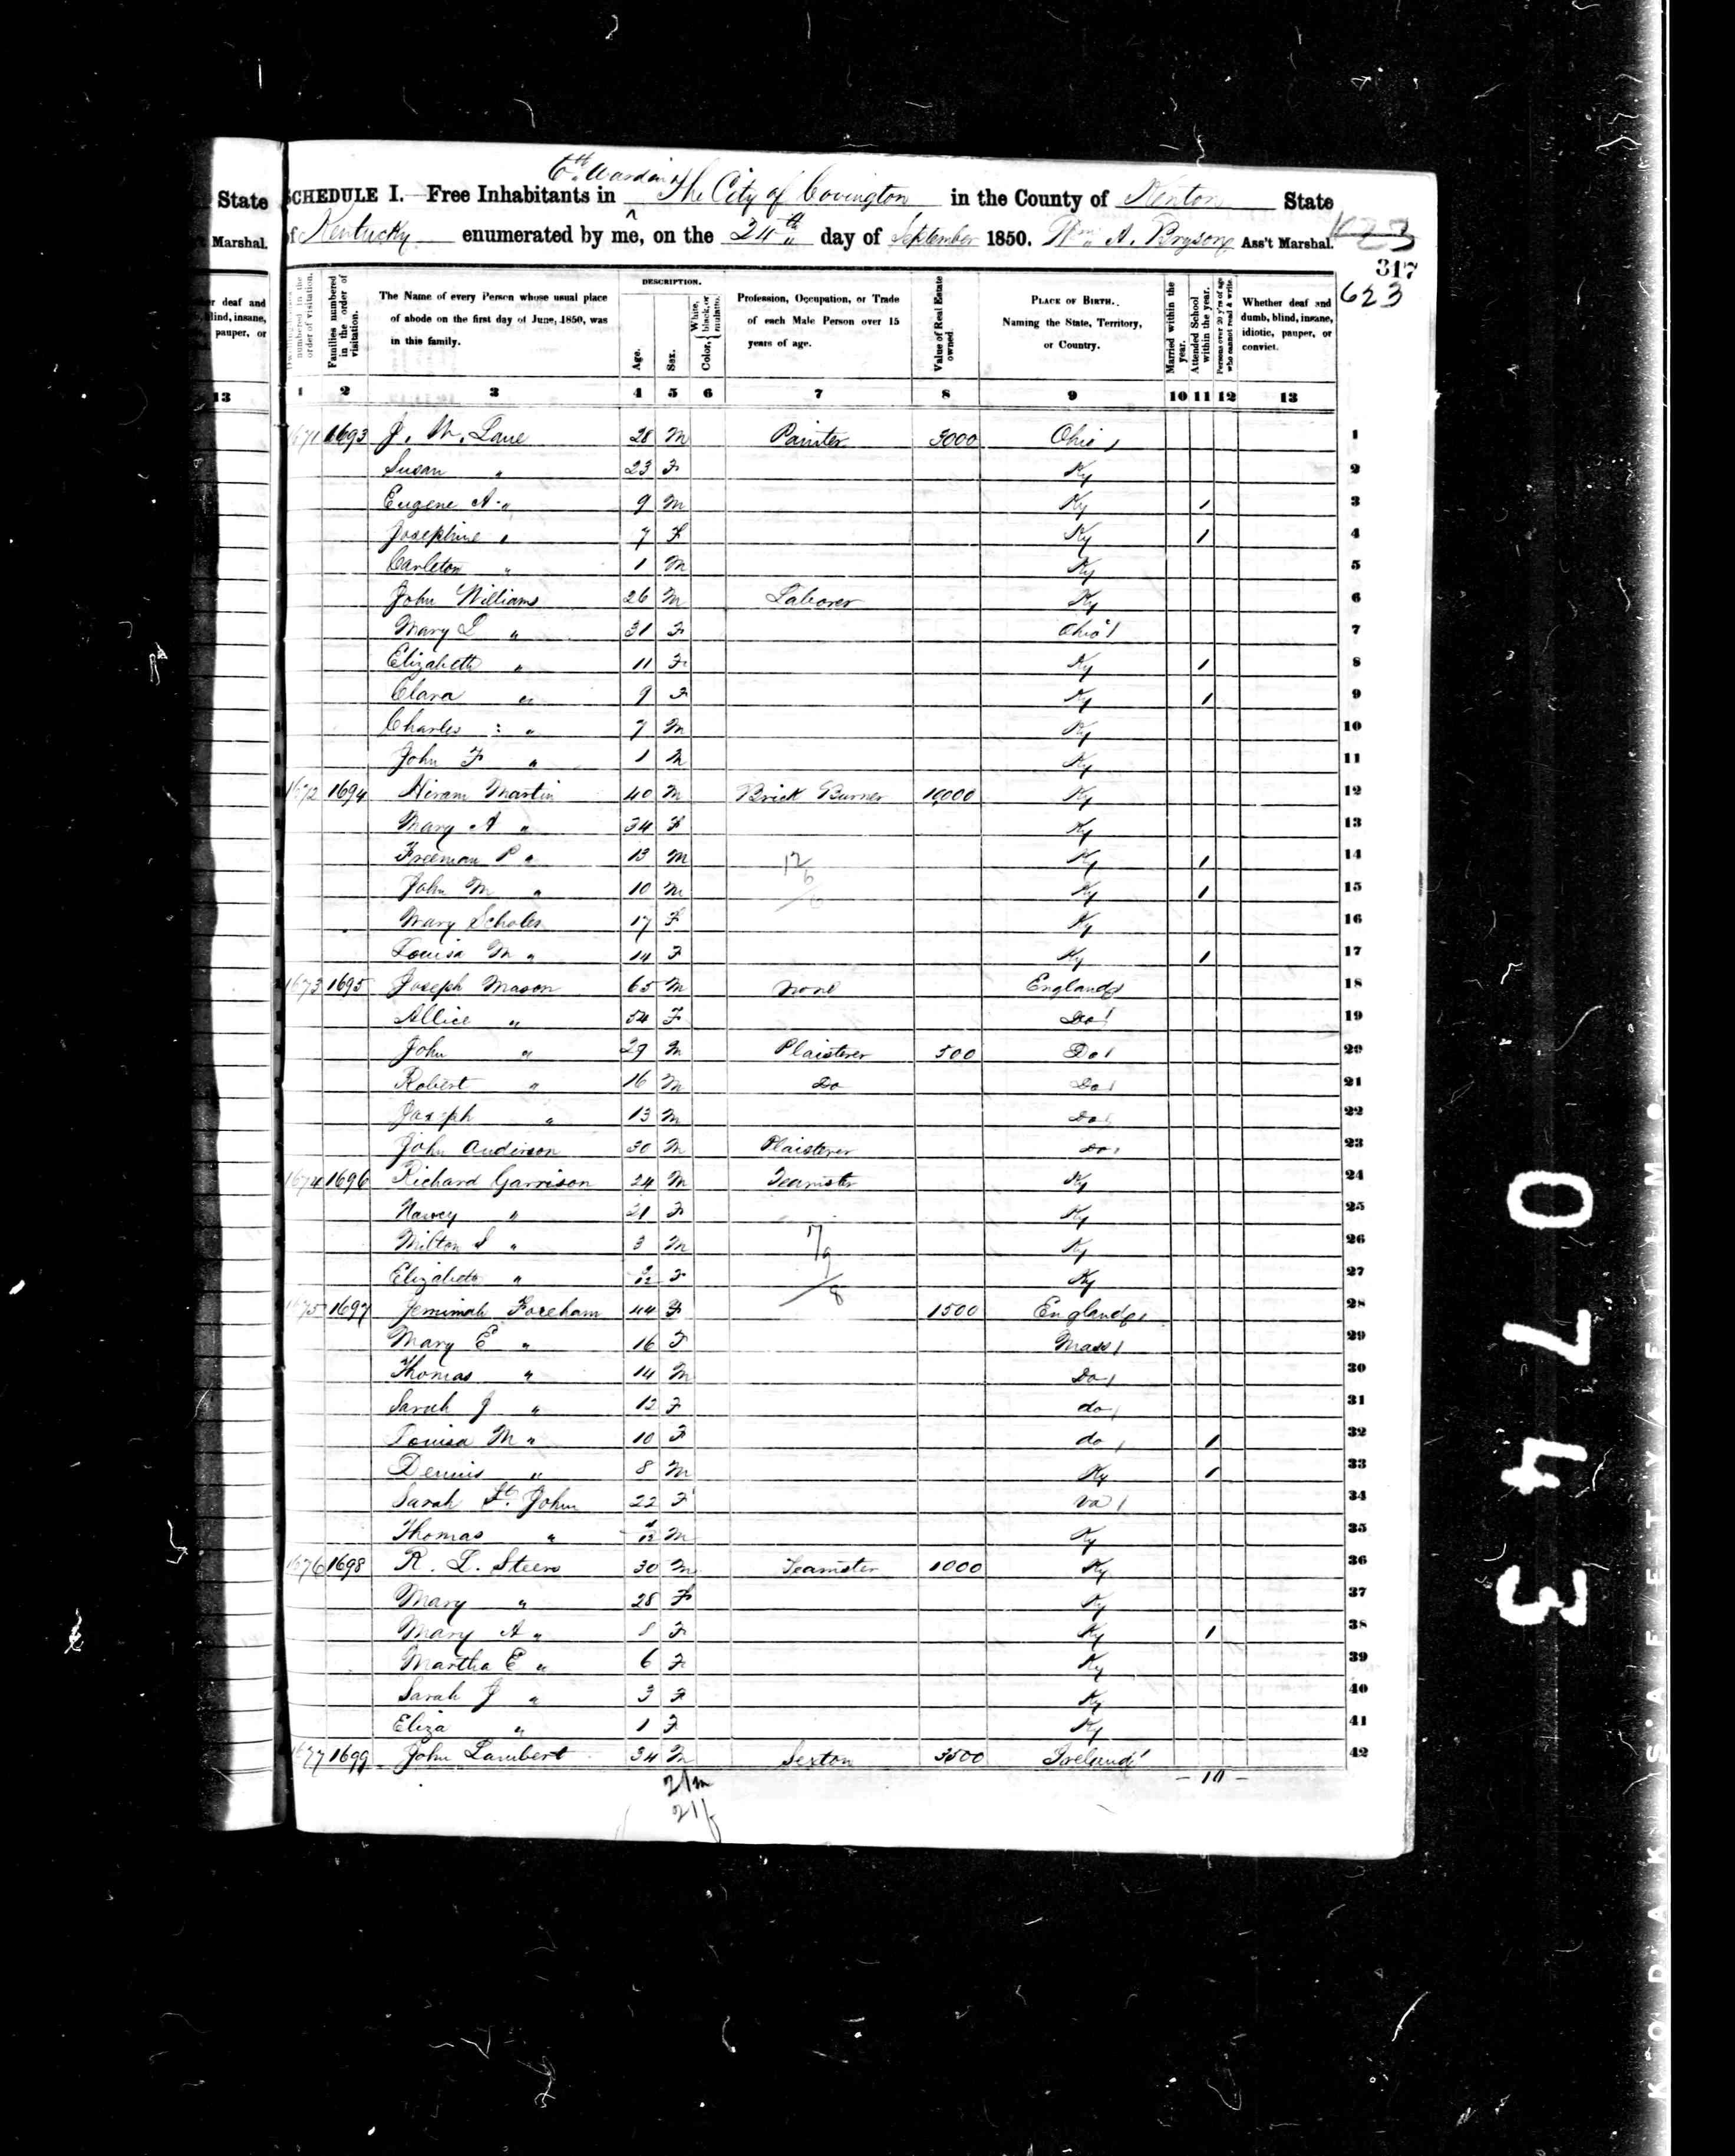 State
t Marshal.
er deaf and
lind, insane,
pauper, or
13
6th Ward in
SCHEDULE I. Free Inhabitants in The City of Covington in the County of Kenton State
of Kentucky enumerated by me, on the 24th day of September 1850. Wm A. Bryson Ass't Marshal.
623
317
623
Dwelling-houses numbered in the order of visitation.
Families numbered in the order of visitation.
The Name of every Person whose usual place of abode on the first day of June, 1850, was in this family.
DESCRIPTION.
Age.
Sex.
Color, White, black, or mulatto.
Profession, Occupation, or Trade of each Male Person over 15 years of age.
Value of Real Estate owned.
PLACE OF BIRTH. Naming the State, Territory, or Country.
Married within the year.
Attended School within the year.
Persons over 20 y'rs of age who cannot read & write.
Whether deaf and dumb, blind, insane, idiotic, pauper, or convict.
1 2 3 4 5 6 7 8 9 10 11 12 13
1671 1693 J. W. Lane 28 M Painter 3000 Ohio / 1
Susan " 23 F Ky 2
Eugene A " 9 M Ky / 3
Josephine " 7 F Ky / 4
Carleton " 1 M Ky 5
John Williams 26 M Laborer Ky 6
Mary L " 31 F Ohio / 7
Elizabeth " 11 F Ky / 8
Clara " 9 F Ky / 9
Charles " 7 M Ky 10
John F " 1 M Ky 11
1672 1694 Hiram Martin 40 M Brick Burner 10,000 Ky 12
Mary A " 34 F Ky 13
Freeman P " 13 M Ky / 14
John M " 10 M Ky / 15
Mary Scholes 17 F Ky 16
Louisa M " 14 F Ky / 17
1673 1695 Joseph Mason 65 M None England / 18
Allice " 54 F Do / 19
John " 29 M Plaisterer 500 Do / 20
Robert " 16 M Do Do / 21
Joseph " 13 M Do / 22
John Anderson 30 M Plaisterer Do / 23
1674 1696 Richard Garrison 24 M Teamster Ky 24
Nancy " 21 F Ky 25
Milton S " 3 M Ky 26
Elizabeth " F Ky 27
1675 1697 Jemimah Foreham 44 F 1500 England / 28
Mary E " 16 F Mass / 29
Thomas " 14 M Do / 30
Sarah J " 12 F do / 31
Louisa M " 10 F do / / 32
Dennis " 8 M Ky / 33
Sarah St. John 22 F Va / 34
Thomas " M Ky 35
1676 1698 R. L. Steers 30 M Teamster 1000 Ky 36
Mary " 28 F Ky 37
Mary A " 8 F Ky / 38
Martha E " 6 F Ky 39
Sarah J " 3 F Ky 40
Eliza " 1 F Ky 41
1677 1699 John Lambert 34 M Sexton 3500 Ireland / 42
21 m
21 f
- 10 -
3470
KODAK SAFETY FILM